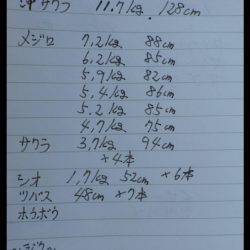 沖サワラ 11.7kg 128cm
メジロ 7,2kg 88cm
6,2kg 85cm
5,9kg 82cm
5,4kg 86cm
5.2kg 85cm
4,7kg 75cm
サワラ 3,7kg 94cm
×4本
シオ 1,7kg 52cm ×6本
ツバス 48cm ×7本
ホウボウ